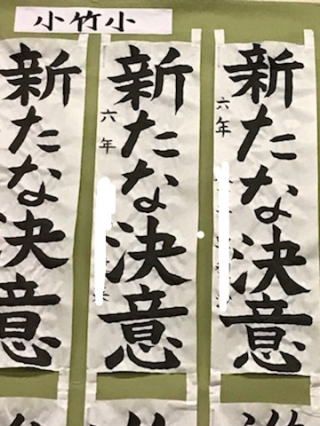 小竹小
新たな決意
六年
新たな決意
六年
新たな決意